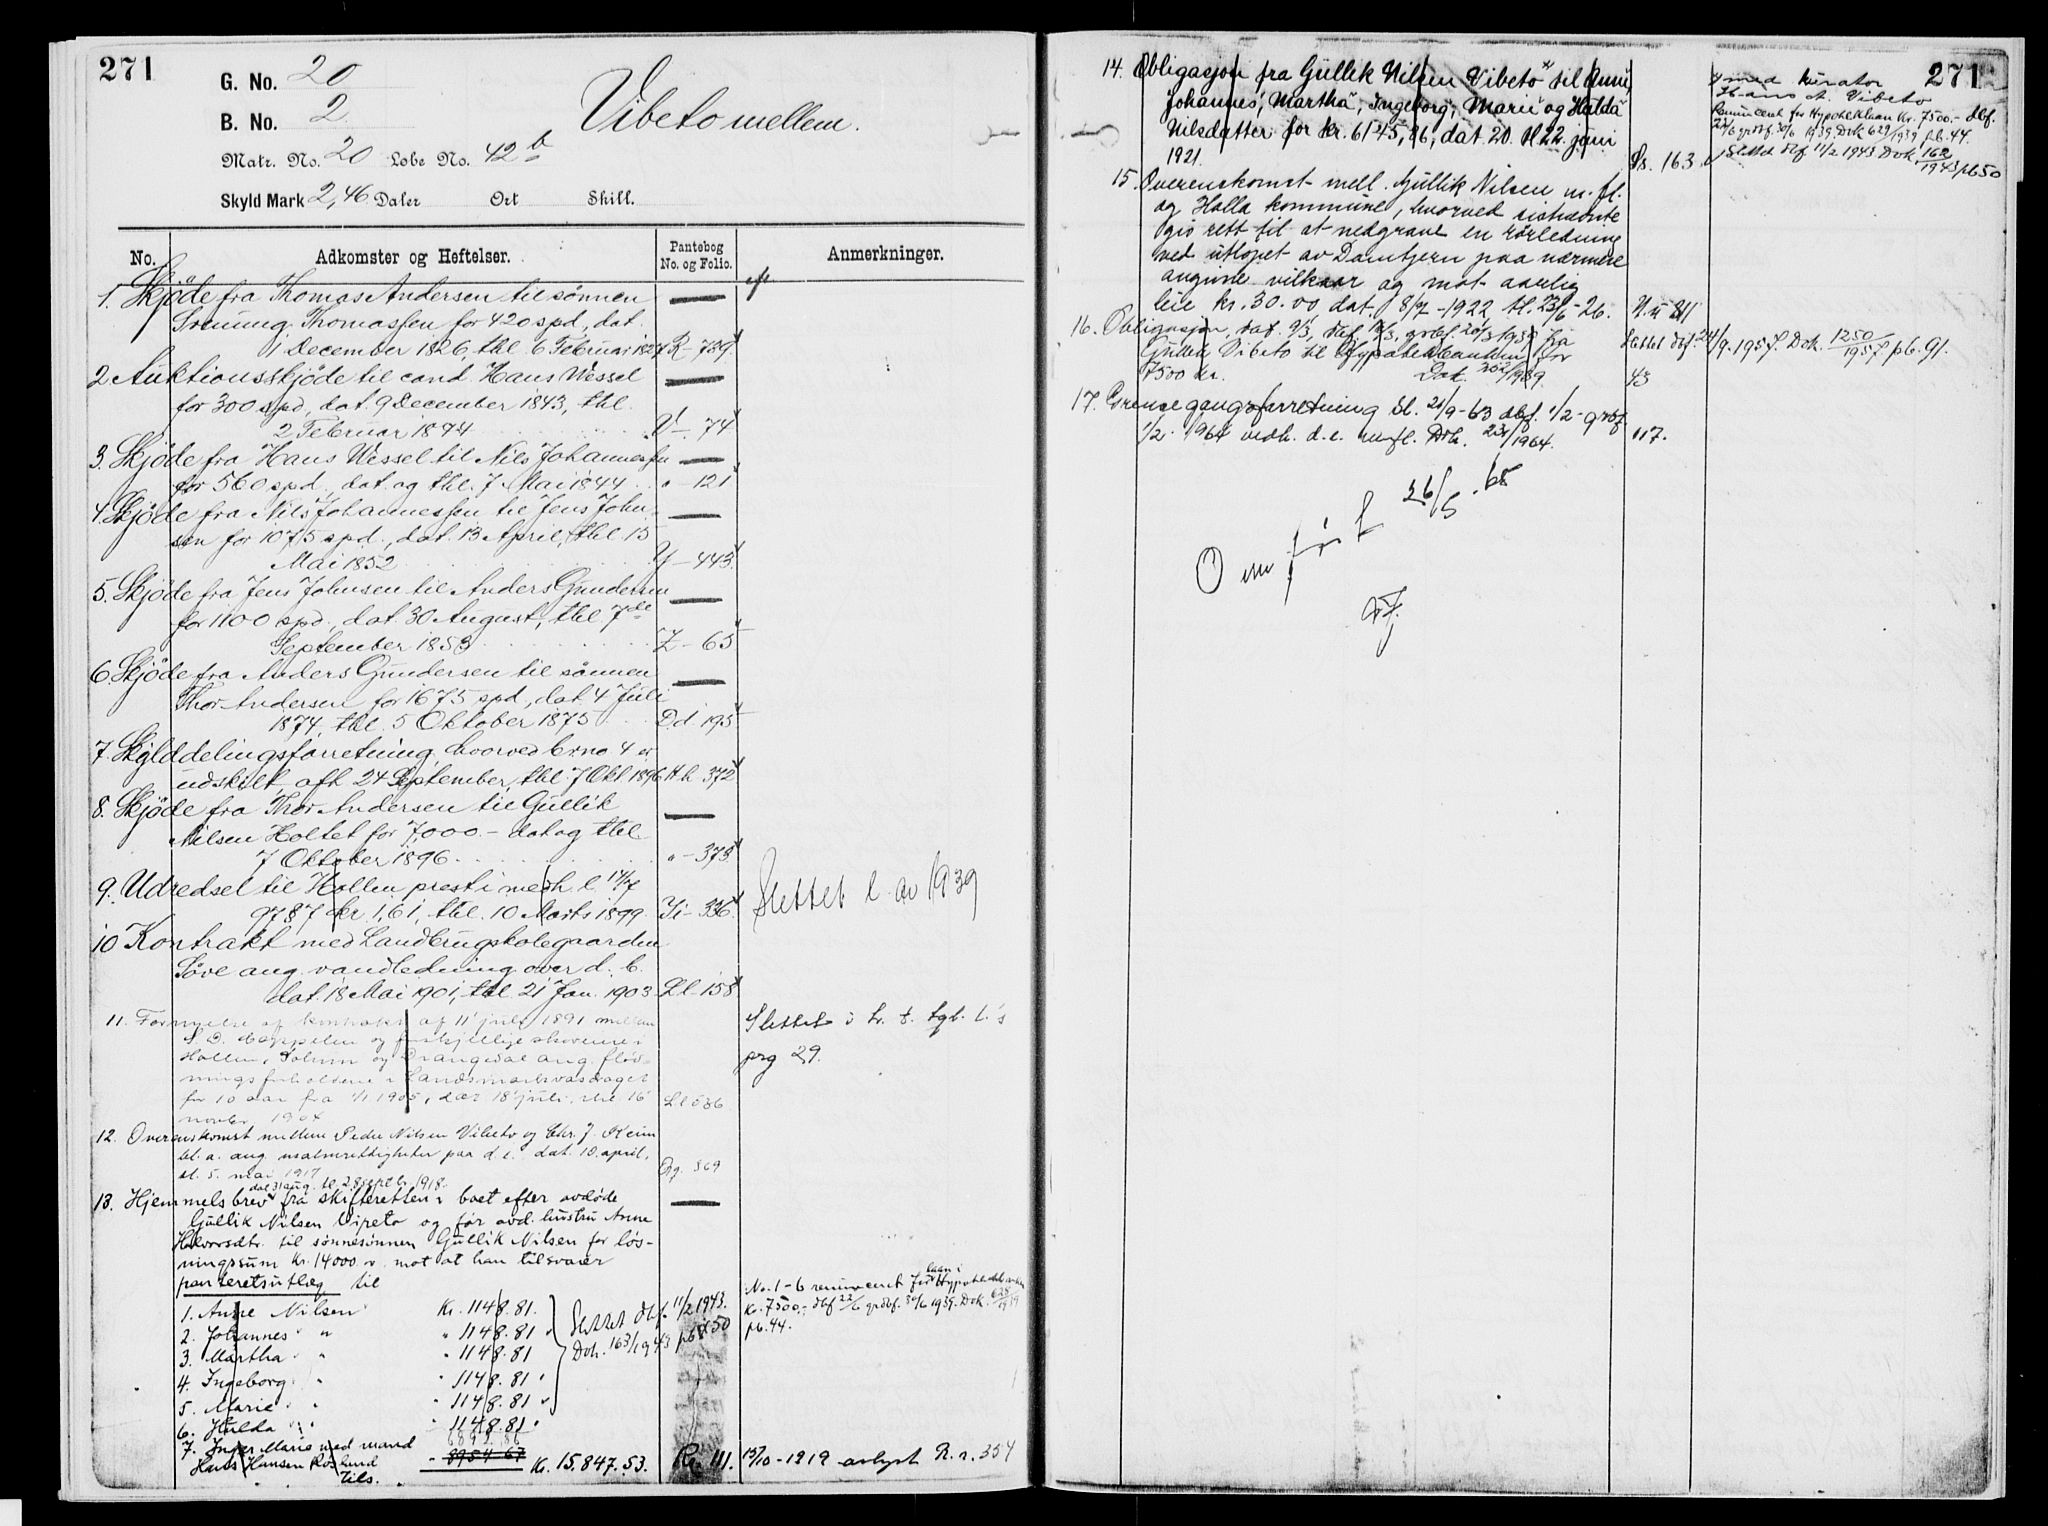 271
G. No. 20
B. No. 2
Vibeto mellem.
Matr. No. 20 Løbe No. 42b
Skyld Mark 2,46 Daler Ort Skill.
No. Adkomster og Heftelser. Pantebog No. og Folio. Anmerkninger.
1. Skjøde fra Thomas Andersen til sønnen
Thomassen for 420 spd, dat.
1 December 1826, thl. 6 Februar 1827 R - 739.
2 Auktionsskjøde til cand Hans Wessel
for 300 spd, dat. 9 December 1843, thl.
2 Februar 1844 V - 74
3. Skjøde fra Hans Wessel til Nils Johannessen
for 560 spd., dat. og thl. 7 Mai 1844 " - 121
4. Skjøde fra Nils Johannessen til Jens John-
sen for 1075 spd., dat. 13 April, thl. 15
Mai 1852 Y - 443.
5. Skjøde fra Jens Johnsen til Anders Gundersen
for 1100 spd., dat. 30 August, thl. 7de
September 1853 Z - 65
6. Skjøde fra Anders Gundersen til sønnen
Thor Andersen for 1675 spd, dat. 4 Juli
1874, thl. 5 Oktober 1875 Dd 195
7. Skylddelingsforretning, hvorved brno 4 er
udskilt, afh. 24 September, thl. 7 Okt 1896 Hh 372
8. Skjøde fra Thor Andersen til Gullik
Nilsen Holtet for 7,000.- dat og thl.
7 Oktober 1896. " - 373
9. Udredsel til Hollen prest i medh. l. 14/7
97 § 7 kr. 1,61, thl. 10 Marts 1899. Ii - 336. Slettet l. av 1939
10 Kontrakt med Landbrugskolegaarden
Søve ang. vandledning over d. b.
dat. 18 Mai 1901, thl. 21 Jan. 1903 Ll - 158
11. Fornyelse af kontrakt af 11 juli 1891 mellem Slettet i h. t. tgl. l.'s
S. D. Cappelen og forskjellige skoveiere i
Hollen, Solum og Drangedal ang. fløt- prg 29.
ningsforholdene i Landsmarksvasdraget
for 10 aar fra 1/1 1905, dat. 18 juli, thl. 16
novbr. 1904 Ll 536
12. Overenskomst mellem Peder Nilsen Vibeto og Chr. J. Reim
bl. a. ang. malmrettigheter paa d. e. dat. 10. april,
tl. 5. mai 1917 Qq. 369
dat 31 aug. tl. 28 septbr. 1918.
13. Hjemmelsbrev fra skifteretten i boet efter avdøde
Gullik Nilsen Vipeto og før avd. hustru Anne
Halvorsdtr. til sønnesønnen Gullik Nilsen for løs-
ningssum kr. 14000.00 mot at han tilsvarer
panteretsutlæg til
laan i
No. 1-6 rennonceret for Hypothekbanken
1. Anne Nilsen Kr. 1148.81. Slettet dbf. 11/2 1943. Kr. 7500.- dbf 22/6 grdbf. 30/6 1939. Dok. 628/1939
2. Johannes " " 1148.81 Dok. 163/1943 pb 50 pb. 44.
3. Martha " " 1148.81
4. Ingeborg " " 1148.81
5. Marie " " 1148.81
6. Hulda " " 1148.81
6892.86
7. Inger Marie med mand
Hans Hansen Røslund 8954.67 Kr. 15.847.53. Rr. 111. 15/10-1919 avlyst R.r. 354
tils.
271
14. Obligasjon fra Gullik Nilsen Vibeto x) til Anne,
Johannes, Martha, Ingeborg, Marie og Hulda
Nilsdatter for kr. 6145,86, dat 20. tl 22. juni
1921. Ss. 163
x) med kurator
Hans A. Vibeto
Rennonceret for Hypotekbank Kr. 7500.- dbf.
22/6 grdbf. 30/6 1939. Dok 629/1939 pb. 44.
Slettet dbf 11/2 1943 Dok. 162/1943 pb 50
15. Overenskomst mell. Gullik Nilsen m. fl.
og Holla kommune, hvorved sistnevnte
gis rett til at nedgrave en rørledning
ved utløpet av Damtjern paa nærmere
angivne vilkaar og mot aarlig
leie kr. 30.00, dat. 8/7-1922 tl. 23/6-26. U.u 811
16. Obligasjon, dat. 9/3, dbf. 18/3, grbf. 20/3 1939 fra
Gullik Vibeto til Hypotekbanken for
7500 kr. Dok. 352/1939. 43
Slettet dbf. 24/9.1957. Dok. 1250/1957 pb. 91.
17. Grensegangsforretning tl. 21/9-63 dbf. 1/2 - grbf.
1/2 1964 vedk. d.e. m.fl. Dok. 231/1964. 117.
Omført 26/5.65